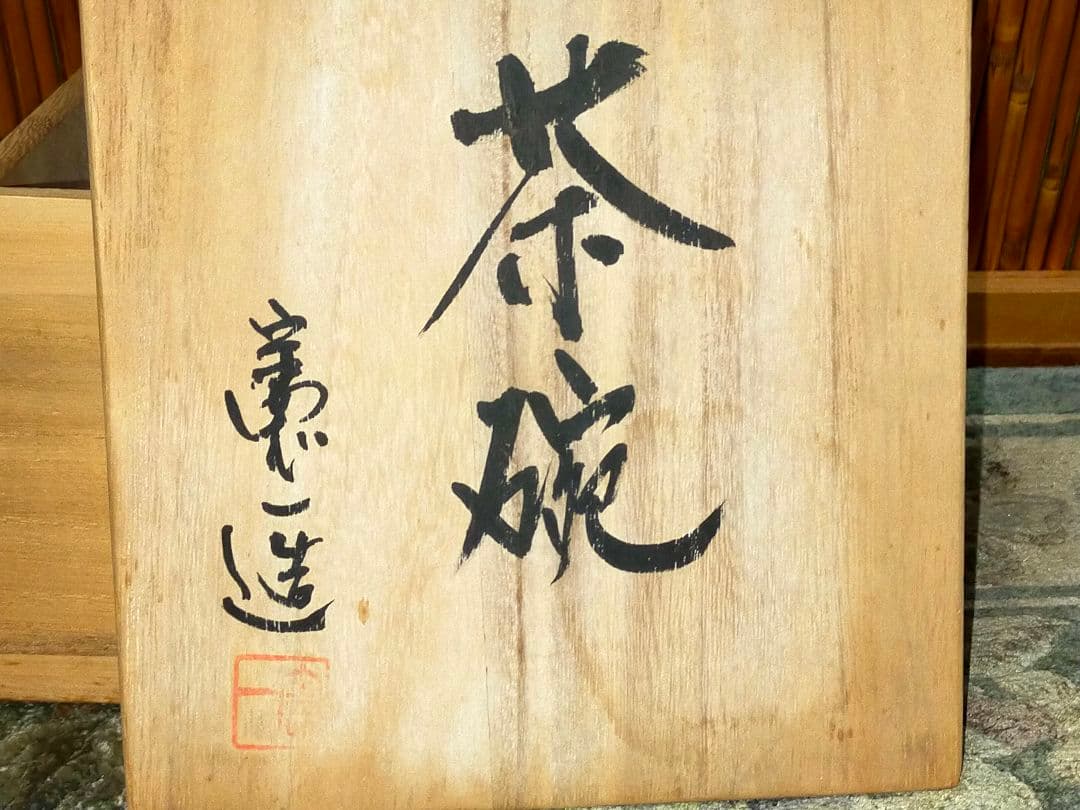 茶碗
一造